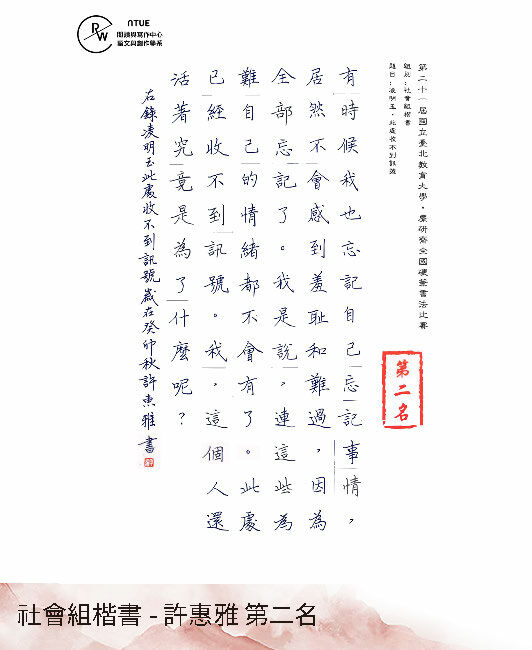 RW
NTUE
閱讀與寫作中心
語文與創作學系
第二十一屆國立臺北教育大學·麋研齋全國硬筆書法比賽
組別：社會組楷書
題目：凌明玉·此處收不到訊號
第二名
有時候我也忘記自己忘記事情，
居然不會感到羞恥和難過，因為
全部忘記了。我是說，連這些為
難自己的情緒都不會有了。此處
已經收不到訊號。我，這個人還
活著究竟是為了什麼呢？
右錄凌明玉此處收不到訊號歲在癸卯秋許惠雅書
社會組楷書 - 許惠雅 第二名